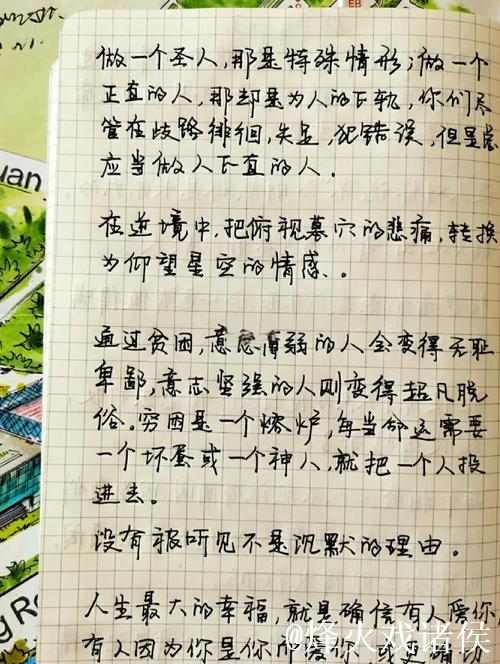 做一个圣人，那是特殊情形；做一个
正直的人，那却是为人的正轨，你们尽
管在歧路徘徊，失足，犯错误，但是总
应当做个正直的人．
在逆境中，把俯视墓穴的悲痛，转换
为仰望星空的情感．。
通过贫困，意志薄弱的人会变得无耻
卑鄙，意志坚强的人则变得超凡脱
俗。穷困是一个熔炉，每当命运需要
一个坏蛋或一个神人，就把一个人投
进去。
没有被听见不是沉默的理由。
人生最大的幸福，就是确信有人爱你，
有人因为你是你而爱你，或更确切
@烽火戏诸侯
uan